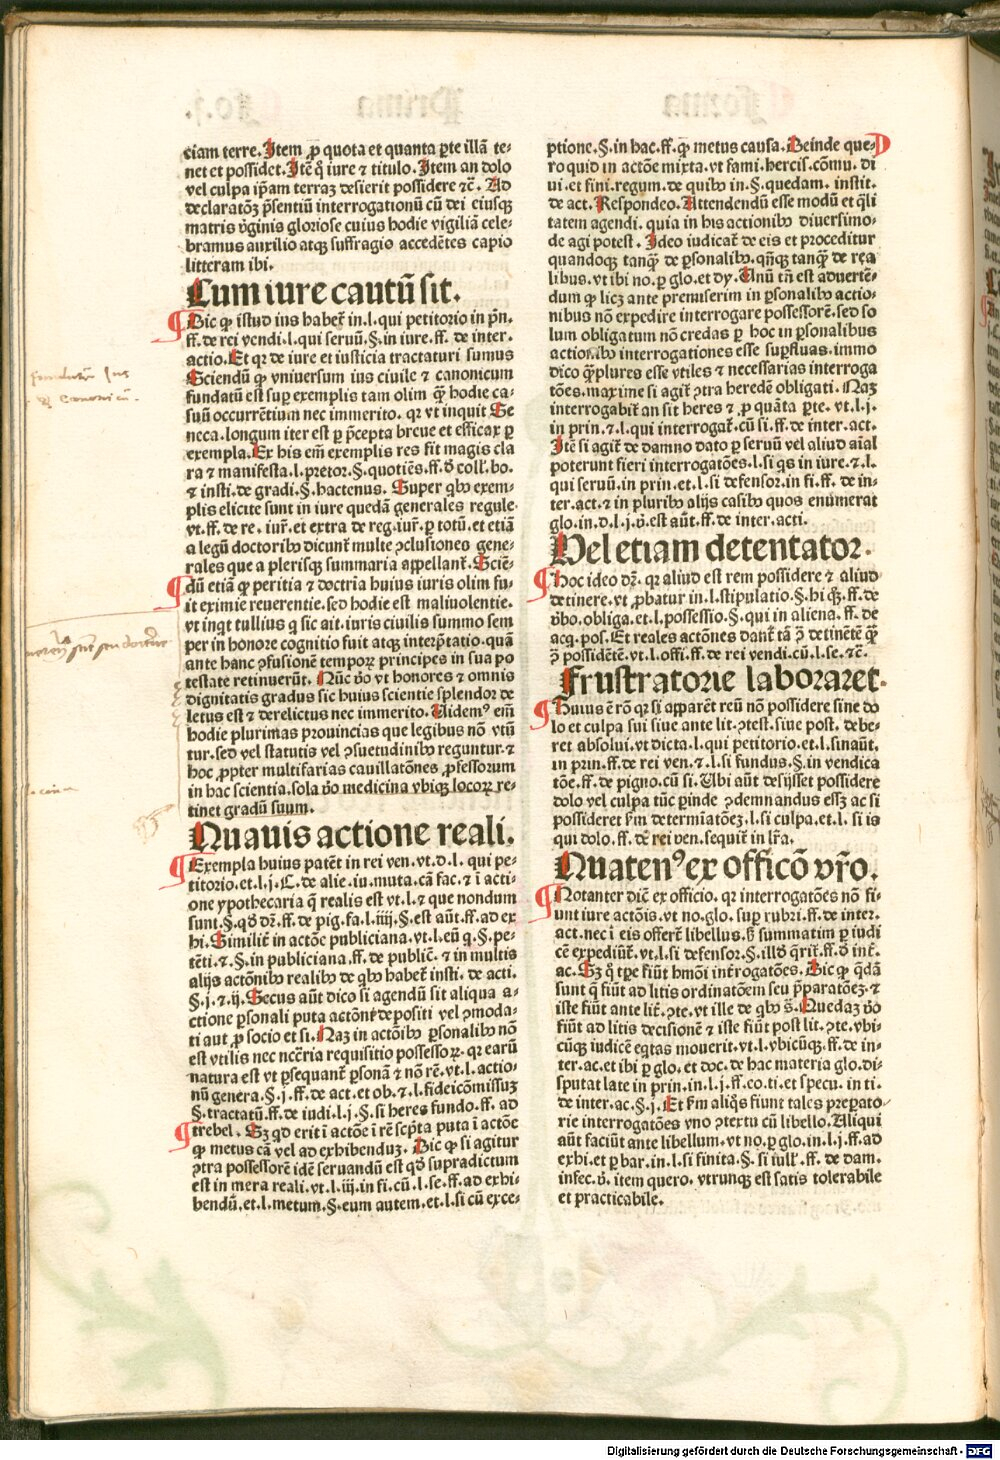 ciam terre. Item ꝓ quota et quanta ꝑte illā te-
net et possidet. Itē q̄ iure ⁊ titulo. Item an dolo
vel culpa ip̄am terraꝫ desierit possidere ⁊c̄. Ad
declaratōꝫ p̄sentiū interrogationū cū dei eiusqꝫ
matris v̄ginis gloriose cuius hodie vigiliā cele-
bramus auxilio atqꝫ suffragio accedētes capio
litteram ibi.
Cum iure cautū sit.
Dic ꝙ istud ius habet᷑ in.l. qui petitorio in pⁿ.
ff. de rei vendi.l. qui seruū.§. in iure.ff. de inter.
actio. Et qꝛ de iure et iusticia tractaturi sumus
Sciendū ꝙ vniuersum ius ciuile ⁊ canonicum
fundatū est suꝑ exemplis tam olim qͣꝫ hodie ca-
suū occurrētium nec immerito. qꝛ vt inquit Se
neca. longum iter est ꝑ p̄cepta breue et efficax ꝑ
exempla. Ex his em̄ exemplis res fit magis cla
ra ⁊ manifesta.l. pretor.§. quotiēs.ff. ð coll̄. bo.
⁊ insti. de gradi.§. hactenus. Super qͥbꝰ exem-
plis elicite sunt in iure quedā generales regule
vt.ff. de re. iur̄. et extra de reg. iur̄. ꝑ totū. et etiā
a legū doctoribꝰ dicunt᷑ multe ↄclusiones gene-
rales que a plerisqꝫ summaria appellant᷑. Sciē-
dū etiā ꝙ peritia ⁊ doctria huius iuris olim fu-
it eximie reuerentie. sed hodie est maliuolentie.
vt inqͥt tullius q̄ sic ait. iuris ciuilis summo sem
per in honore cognitio fuit atqꝫ interp̄tatio. quā
ante hanc ↄfusionē tempoꝝ principes in sua po
testate retinuerūt. Nūc v̄o vt honores ⁊ omnis
dignitatis gradus sic huius scientie splendor de
letus est ⁊ derelictus nec immerito. Videmꝰ em̄
hodie plurimas prouincias que legibus nō vtū
tur. sed vel statutis vel ↄsuetudinibꝰ reguntur. ⁊
hoc ꝓpter multifarias cauillatōnes ꝓfessorum
in hac scientia. sola v̄o medicina vbiqꝫ locoꝝ re-
tinet gradū suum.
Quauis actione reali.
Exempla huius patēt in rei ven. vt.d.l. qui pe-
titorio. et.l.j.C. de alie. iu. muta. cā fac. ⁊ ī acti-
one ypothecaria q̄ realis est vt.l. ⁊ que nondum
sunt.§. qð dꝛ̄.ff. de pig. fa.l.iiij.§. est aūt.ff. ad ex
hi. Similit᷑ in actōe publiciana. vt.l. eū q.§. pe-
tēti. ⁊.§. in publiciana.ff. de public̄. ⁊ in multis
alijs actōnibꝰ realibꝰ de qͥbꝰ habet᷑ insti. de acti.
§.j.⁊.ij. Secus aūt dico si agendū sit aliqua a-
ctione ꝑsonali puta actōne depositi vel ↄmoda-
ti aut ꝓ socio et si. Naꝫ in actōibꝰ ꝑsonalibꝰ nō
est vtilis nec nccͣria requisitio possessoꝝ. qꝛ earū
natura est vt ꝑsequant᷑ ꝑsonā ⁊ nō rē. vt.l. actio-
nū genera.§.j.ff. de act. et ob. ⁊.l. fideicōmissuꝫ
§. tractatū.ff. de iudi.l.j.§. si heres fundo.ff. ad
trebel. Sꝫ qd erit ī actōe ī rē scp̄ta puta ī actōe
ꝙ metus cā vel ad exhibenduꝫ. Dic ꝙ si agitur
ↄtra possessorē idē seruandū est qð supradictum
est in mera reali. vt.l.iij. in fi. cū.l. se.ff. ad exhi-
bendū. et.l. metum.§. eum autem. et.l. si cū exce-
ptione.§. in hac.ff. ꝙ metus causa. Deinde que-
ro quid in actōe mixta. vt fami. hercis. cōmu. di
ui. et fini. regum. de quibꝰ in.§. quedam. instit.
de act. Respondeo. Attendendū esse modū et qͣli
tatem agendi. quia in his actionibꝰ diuersimo-
de agi potest. Ideo iudicat᷑ de eis et proceditur
quandoqꝫ tanqͣꝫ de ꝑsonalibꝰ. qn̄qꝫ tanqͣꝫ de rea
libus. vt ibi no. ꝑ glo. et dy. Unū tn̄ est aduertē-
dum ꝙ licꝫ ante premiserim in ꝑsonalibꝰ actio-
nibus nō expedire interrogare possessorē. sed so
lum obligatum nō credas ꝑ hoc in ꝑsonalibus
actionibꝰ interrogationes esse suꝑfluas. immo
dico qͣꝫplures esse vtiles ⁊ necessarias interroga
tōes. maxime si agit᷑ ↄtra heredē obligati. Naꝫ
interrogabit᷑ an sit heres ⁊ ꝓ quāta ꝑte. vt.l.j.
in prin. ⁊.l. qui interrogat᷑. cū si.ff. de inter. act.
Itē si agit᷑ de damno dato ꝑ seruū vel aliud aīal
poterunt fieri interrogatōes.l. si qͥs in iure. ⁊.l.
qui seruū. in prin. et.l. si defensor. in fi.ff. de in-
ter. act. ⁊ in pluribꝰ alijs casibꝰ quos enumerat
glo. in.d.l.j. v̄. est aūt.ff. de inter. acti.
Vel etiam detentator.
Hoc ideo dꝛ̄. qꝛ aliud est rem possidere ⁊ aliud
detinere. vt ꝓbatur in.l. stipulatio.§. hi qͥꝫ.ff. de
v̄bo. obliga. et.l. possessio.§. qui in aliena.ff. de
acq. pos. Et reales actōnes dant᷑ tā ↄ̄ detinētē qͣꝫ
ↄ̄ possidētē. vt.l. offi.ff. de rei vendi. cū.l. se. ⁊c̄.
Frustratorie laboraret.
Huius ē rō qꝛ si apparēt reū nō possidere sine do
lo et culpa sui siue ante lit. ↄtest. siue post. debe-
ret absolui. vt dicta.l. qui petitorio. et.l. sinaūt.
in prin.ff. de rei ven. ⁊.l. si fundus.§. in vendica
tōe.ff. de pigno. cū si. Ubi aūt desijsset possidere
dolo vel culpa tūc ꝑinde ↄdemnandus essꝫ ac si
possideret ẜm determīatōeꝫ.l. si culpa. et.l. si is
qui dolo.ff. de rei ven. sequit᷑ in lr̄a.
Quatenꝰ ex officō vr̄o.
Notanter dic̄ ex officio. qꝛ interrogatōes nō fi-
unt iure actōis. vt no. glo. suꝑ rubri.ff. de inter.
act. nec ī eis offert᷑ libellus. hꝫ summatim ꝑ iudi
cē expediūt᷑. vt.l. si defensor.§. illð q̄rit᷑.ff. ð int̄.
ac. Sꝫ q̄ tꝑe fiūt hmōi int̄rogatōes. Dic ꝙ qͥdā
sunt q̄ fiūt ad litis ordinatōem seu p̄paratōeꝫ. ⁊
iste fiūt ante lit᷑. ↄte. vt ille de qͥbꝰ s̄. Quedaꝫ v̄o
fiūt ad litis decisionē ⁊ iste fiūt post lit. ↄte. vbi-
cūqꝫ iudicē eqͥtas mouerit. vt.l. vbicūqꝫ.ff. de in-
ter. ac. et ibi ꝑ glo. et doc. de hac materia glo. di-
sputat late in prin. in.l.j.ff. co. ti. et specu. in ti.
de inter. ac.§.j. Et ẜm aliqͦs fiunt tales preparato-
rie interrogatōes vno ↄtextu cū libello. Aliqui
aūt faciūt ante libellum. vt no. ꝑ glo. in.l.j.ff. ad
exhi. et ꝑ bar. in.l. si finita.§. si iull̄.ff. de dam.
infec. v̄. item quero. vtrunqꝫ est satis tolerabile
et practicabile.
Digitalisierung gefördert durch die Deutsche Forschungsgemeinschaft - DFG